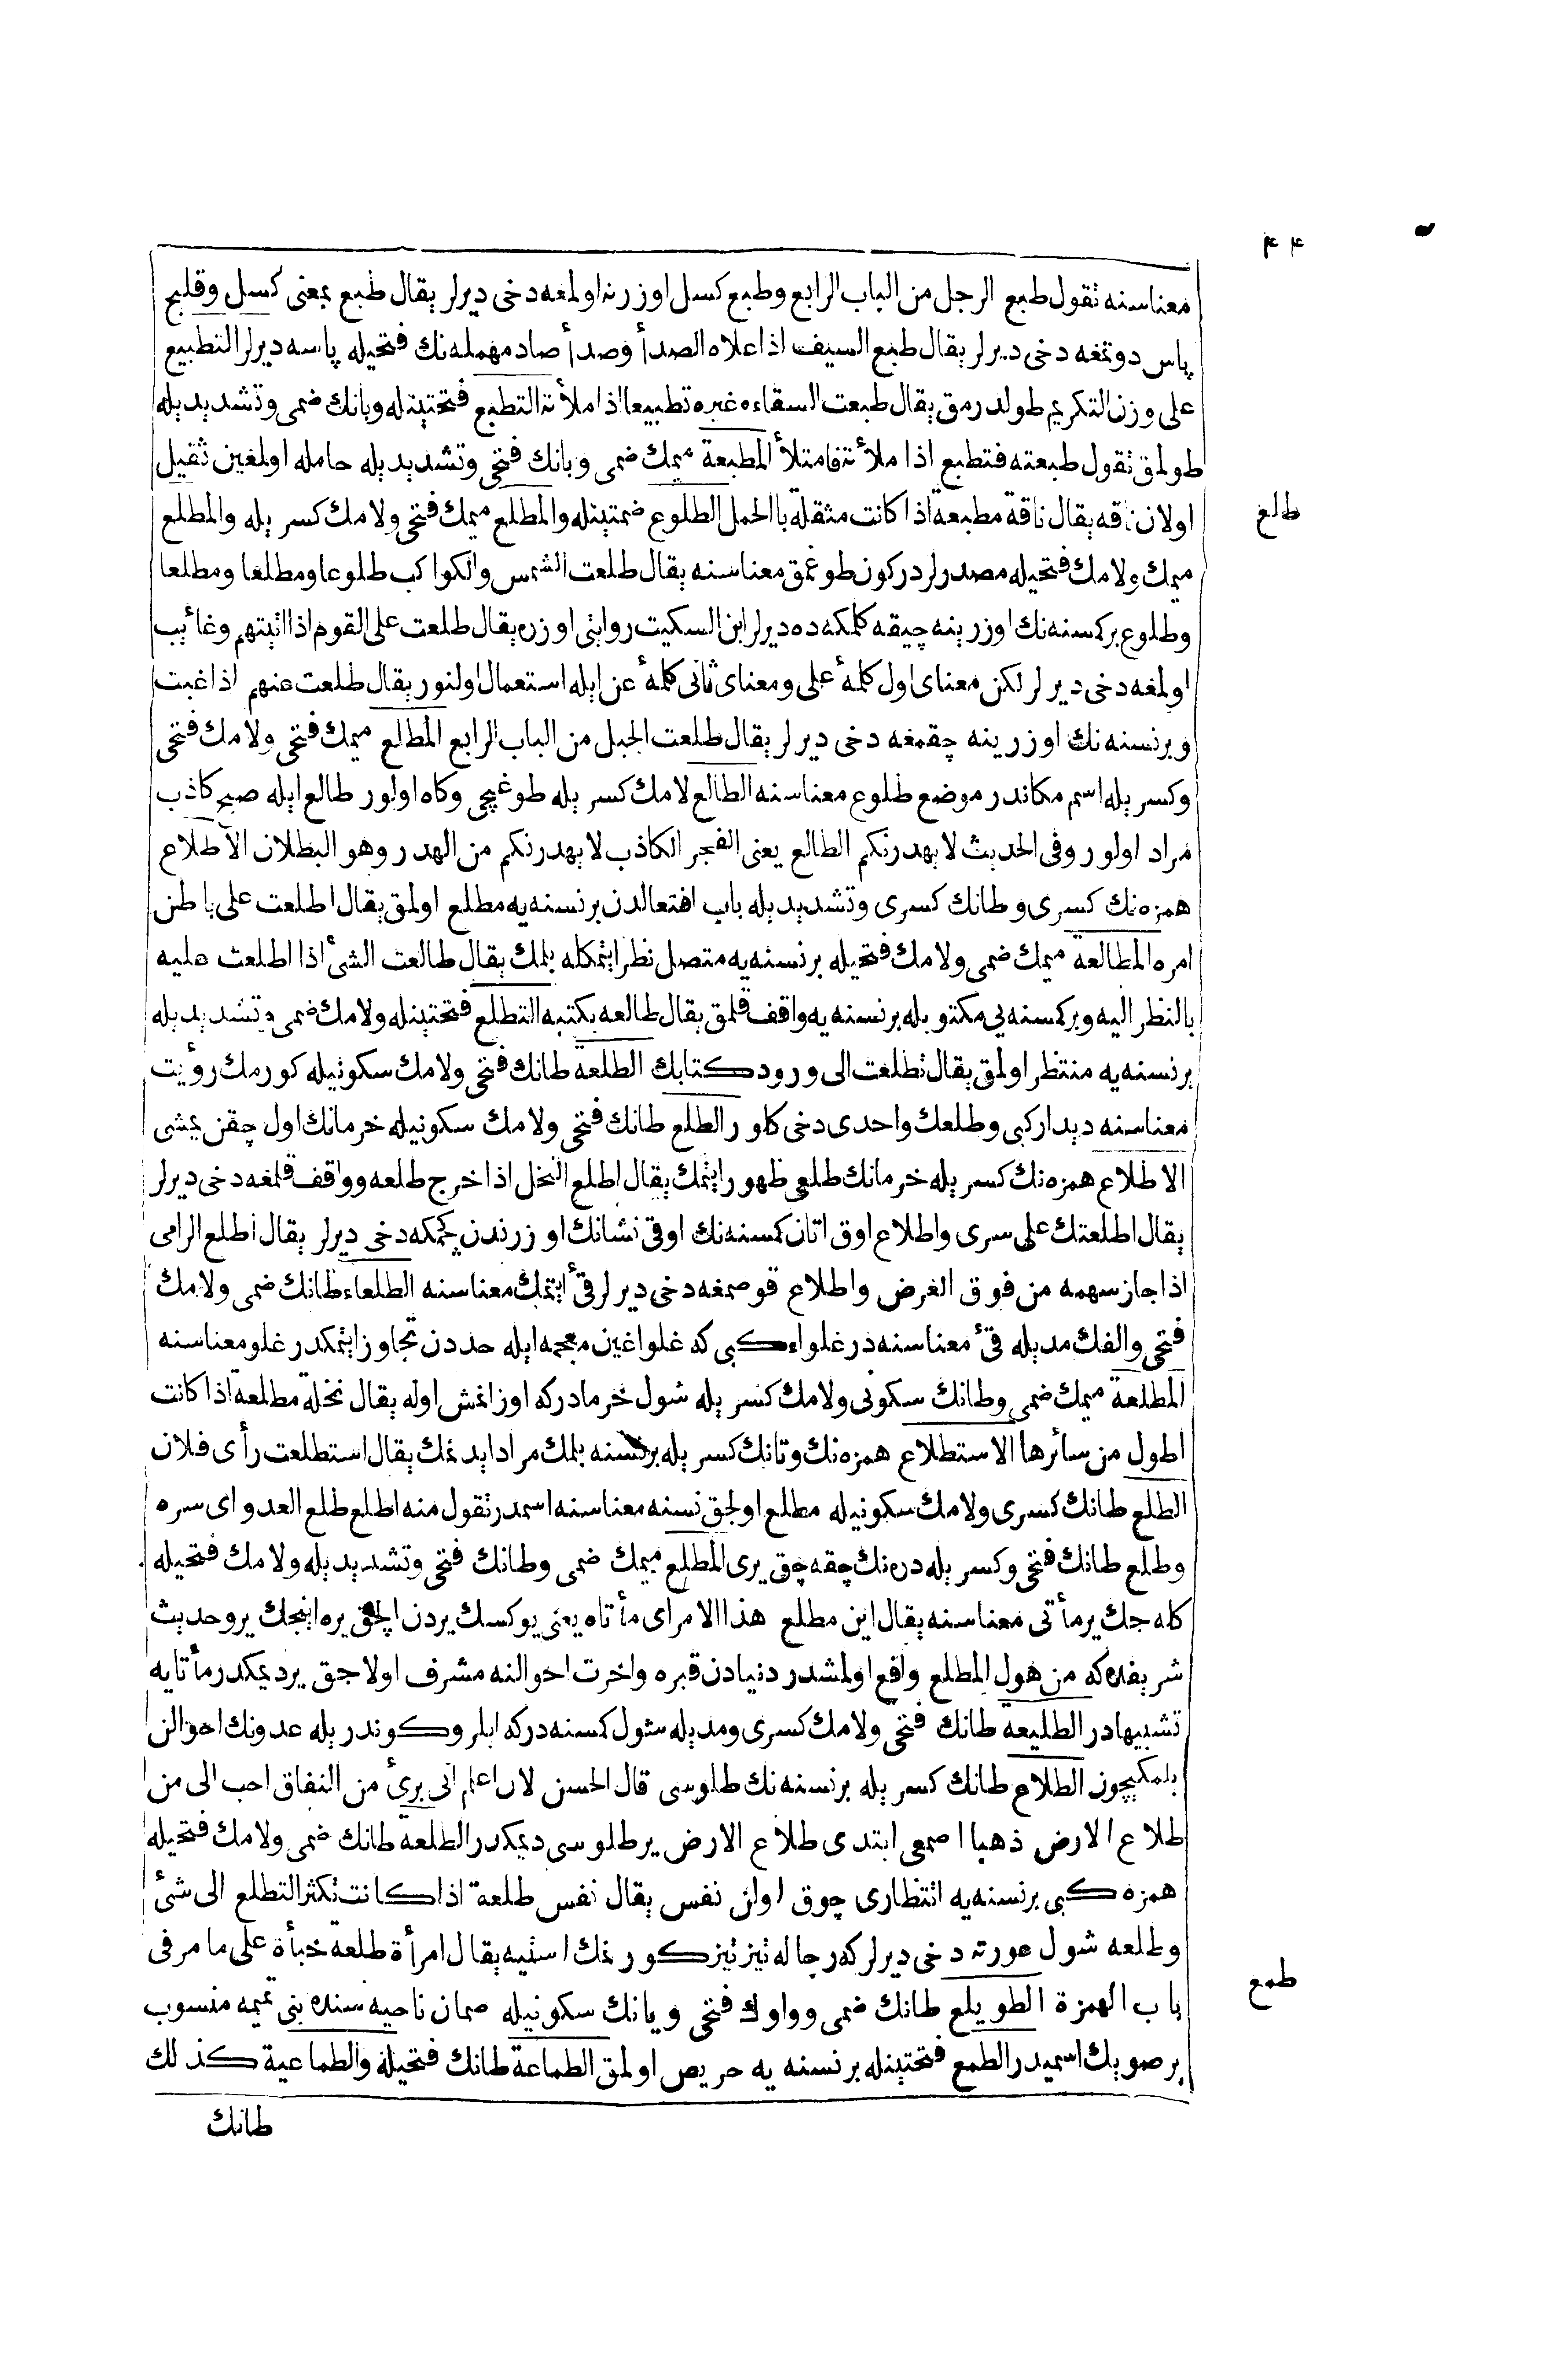 ٤٤
معناسنه تقول طبع الرجل من الباب الرابع وطبع كسل اوزرنه اولمغه دخی دیرلر یقال طبع بمعنی كسل وقلیج
پاس دوتمغه دخی دیرلر یقال طبع السیف اذا علاه الصدأ وصدأ صاد مهمله نك فتحیله پاسه دیرلر التطبیع
علی وزن التكریم طولدرمق یقال طبعت السقاء وغیره تطبیعا اذا ملأته التطبع فتحتینله وبانك ضمی وتشدیدیله
طولمق تقول طبعته فتطبع اذا ملأته فامتلأ المطبعة میمك ضمی وبانك فتحی وتشدیدیله حامله اولمغین ثقیل
اولان ناقه یقال ناقة مطبعة اذا كانت مثقلة بالحمل الطلوع ضمتینله والمطلع میمك فتحی ولامك كسریله والمطلع
طلع
میمك ولامك فتحیله مصدرلردر كون طوغمق معناسنه یقال طلعت الشمس والكواكب طلوعا ومطلعا ومطلعا
وطلوع بركسنه نك اوزرینه چیقه كلمكه ده دیرلر ابن السكیت روایتی اوزره یقال طلعت علی القوم اذا اتیتهم وغائب
اولمغه دخی دیرلر لكن معنای اول كلمۀ علی ومعنای ثانی كلمۀ عن ایله استعمال اولنور یقال طلعت عنهم اذا غبت
وبرنسنه نك اوزرینه چقمغه دخی دیرلر یقال طلعت الجبل من الباب الرابع المطلع میمك فتحی ولامك فتحی
وكسریله اسم مكاندر موضع طلوع معناسنه الطالع لامك كسریله طوغیجی وكاه اولور طالع ایله صبح كاذب
مراد اولور وفی الحدیث لایهدرنكم الطالع یعنی الفجر الكاذب لایهدرنكم من الهدر وهو البطلان الاطلاع
همزه نك كسری وطانك كسری وتشدیدیله باب افتعالدن برنسنه یه مطلع اولمق یقال اطلعت علی باطن
امره المطالعة میمك ضمی ولامك فتحیله برنسنه یه متصل نظر ایتمكله بلمك یقال طالعت الشئ اذا اطلعت علیه
بالنظر الیه وبركسنه یی مكتوبله برنسنه یه واقف قلمق یقال طالعه بكتبه التطلع فتحتینله ولامك ضمی وتشدیدیله
برنسنه یه منتظر اولمق یقال تطلعت الی ورود كتابك الطلعة طانك فتحی ولامك سكونیله كورمك رؤیت
معناسنه دیدار كبی وطلعك واحدی دخی كلور الطلع طانك فتحی ولامك سكونیله خرمانك اول چقن یمشی
الاطلاع همزه نك كسریله خرمانك طلعی ظهور ایتمك یقال اطلع النخل اذا خرج طلعه وواقف قلمغه دخی دیرلر
یقال اطلعتك علی سری واطلاع اوق اتان كمسنه نك اوقی نشانك اوزرندن چكمكه دخی دیرلر یقال اطلع الرامی
اذا جاز سهمه من فوق الغرض واطلاع قوصمغه دخی دیرلر قئ ایتمك معناسنه الطلعاء طانك ضمی ولامك
فتحی والفك مدیله قئ معناسنه در غلواء كبی كه غلوا غین معجمه ایله حددن تجاوز ایتمكدر غلو معناسنه
المطلعة میمك ضمی وطانك سكونی ولامك كسریله شول خرمادركه اوزانمش اوله یقال نخلة مطلعة اذا كانت
اطول من سائرها الاستطلاع همزه نك وتانك كسریله برنسنه بلمك مراد ایدنمك یقال استطلعت رأی فلان
الطلع طانك كسری ولامك سكونیله مطلع اولجق نسنه معناسنه اسمدر تقول منه اطلع طلع العدو ای سره
وطلع طانك فتحی وكسریله دره نك چقه چق یری المطلع میمك ضمی وطانك فتحی وتشدیدیله ولامك فتحیله
كله جك یر مأتی معناسنه یقال این مطلع هذا الامر ای مأتاه یعنی یوكسك یردن الچق یره اینجك یر وحدیث
شریفده كه من هول المطلع واقع اولمشدر دنیادن قبره واخرت احوالنه مشرف اولاجق یر دیمكدر مأتایه
تشبیهادر الطلیعة طانك فتحی ولامك كسری ومدیله شول كمسنه دركه ایلرو كوندریله عدونك احوالن
بلمكیچون الطلاع طانك كسریله برنسنه نك طلوسی قال الحسن لان اعلم انی برئ من النفاق احب الی من
طلاع الارض ذهبا اصمعی ایتدی طلاع الارض یر طلوسی دیمكدر الطلعة طانك ضمی ولامك فتحیله
همزه كبی برنسنه یه انتظاری چوق اولان نفس یقال نفس طلعة اذا كانت تكثر التطلع الی شئ
وطلعه شول عورته دخی دیرلر كه رجاله تیز تیز كورنمك استیه یقال امرأة طلعة خبأة علی ما مر فی
باب الهمزة الطویلع طانك ضمی وواوك فتحی ویانك سكونیله صمان ناحیه سنده بنی تمیمه منسوب
طمع
بر صویك اسمیدر الطمع فتحتینله برنسنه یه حریص اولمق الطماعة طانك فتحیله والطماعیة كذلك
طانك